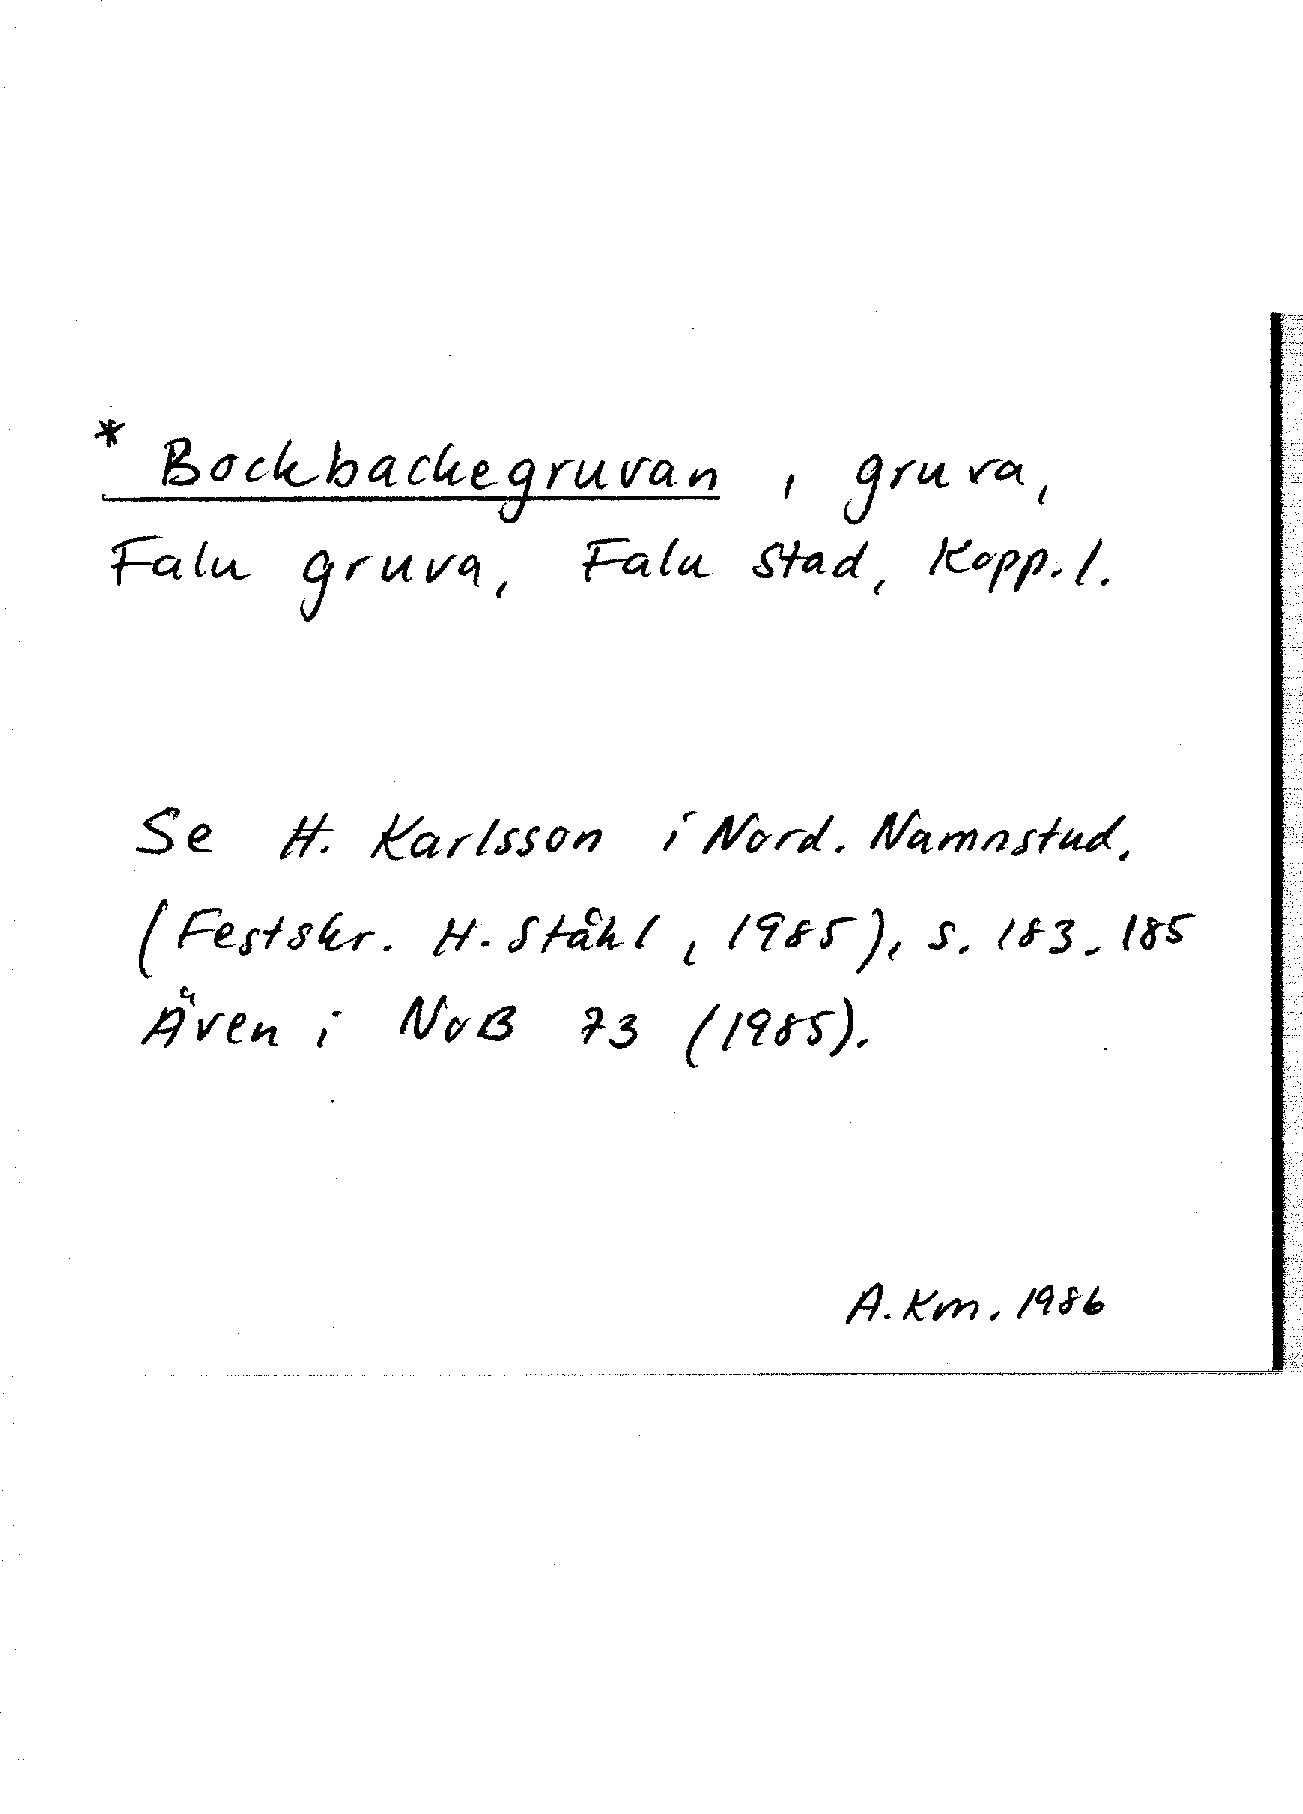 * Bockbackegruvan, gruva,
Falu gruva, Falu stad, Kopp. l.
Se H. Karlsson i Nord. Namnstud.
(Festskr. H. Ståhl, 1985), s. 183-185
Även i NoB 73 (1985).
A. Km. 1986